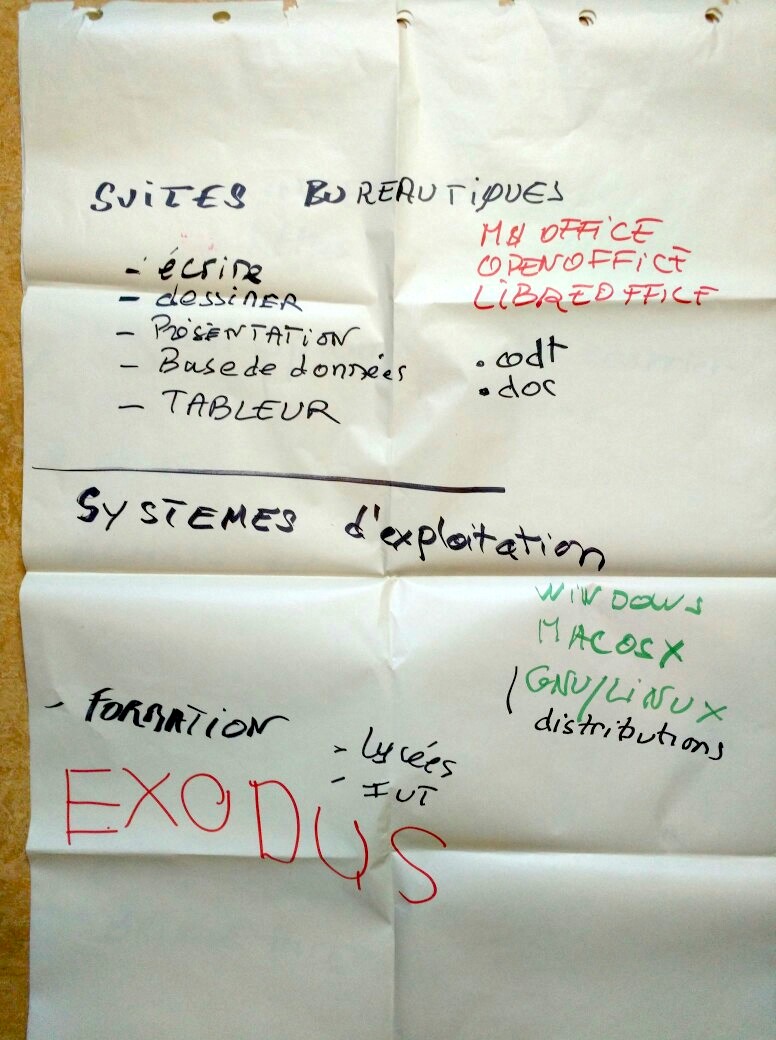 SUITES BUREAUTIQUES
MS OFFICE
OPENOFFICE
LIBREOFFICE
- écrire
- dessiner
- PRÉSENTATION
- Base de données
- TABLEUR
.odt
.doc
SYSTEMES d'exploitation
WINDOWS
MACOSX
GNU/LINUX
distributions
- FORMATION
- Lycées
- IUT
EXODUS